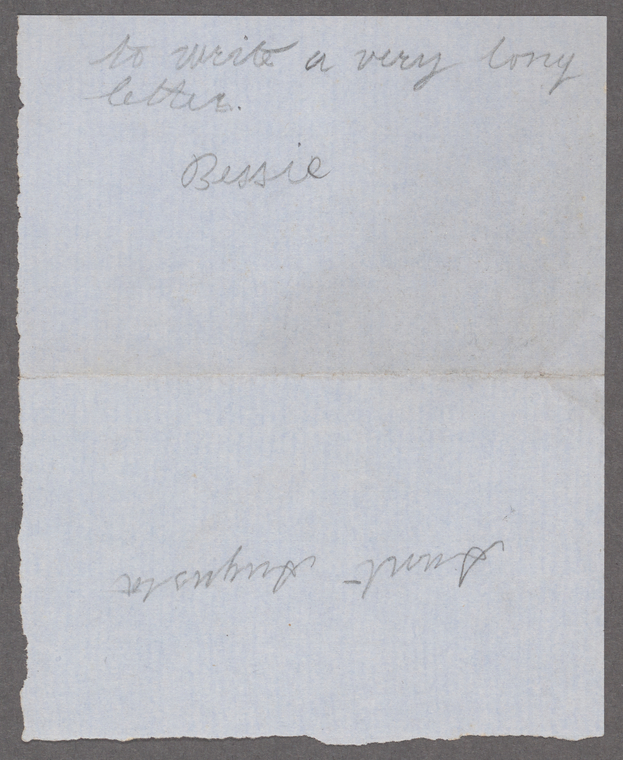 to write a very long
letter.
Bessie
Aunt Augusta